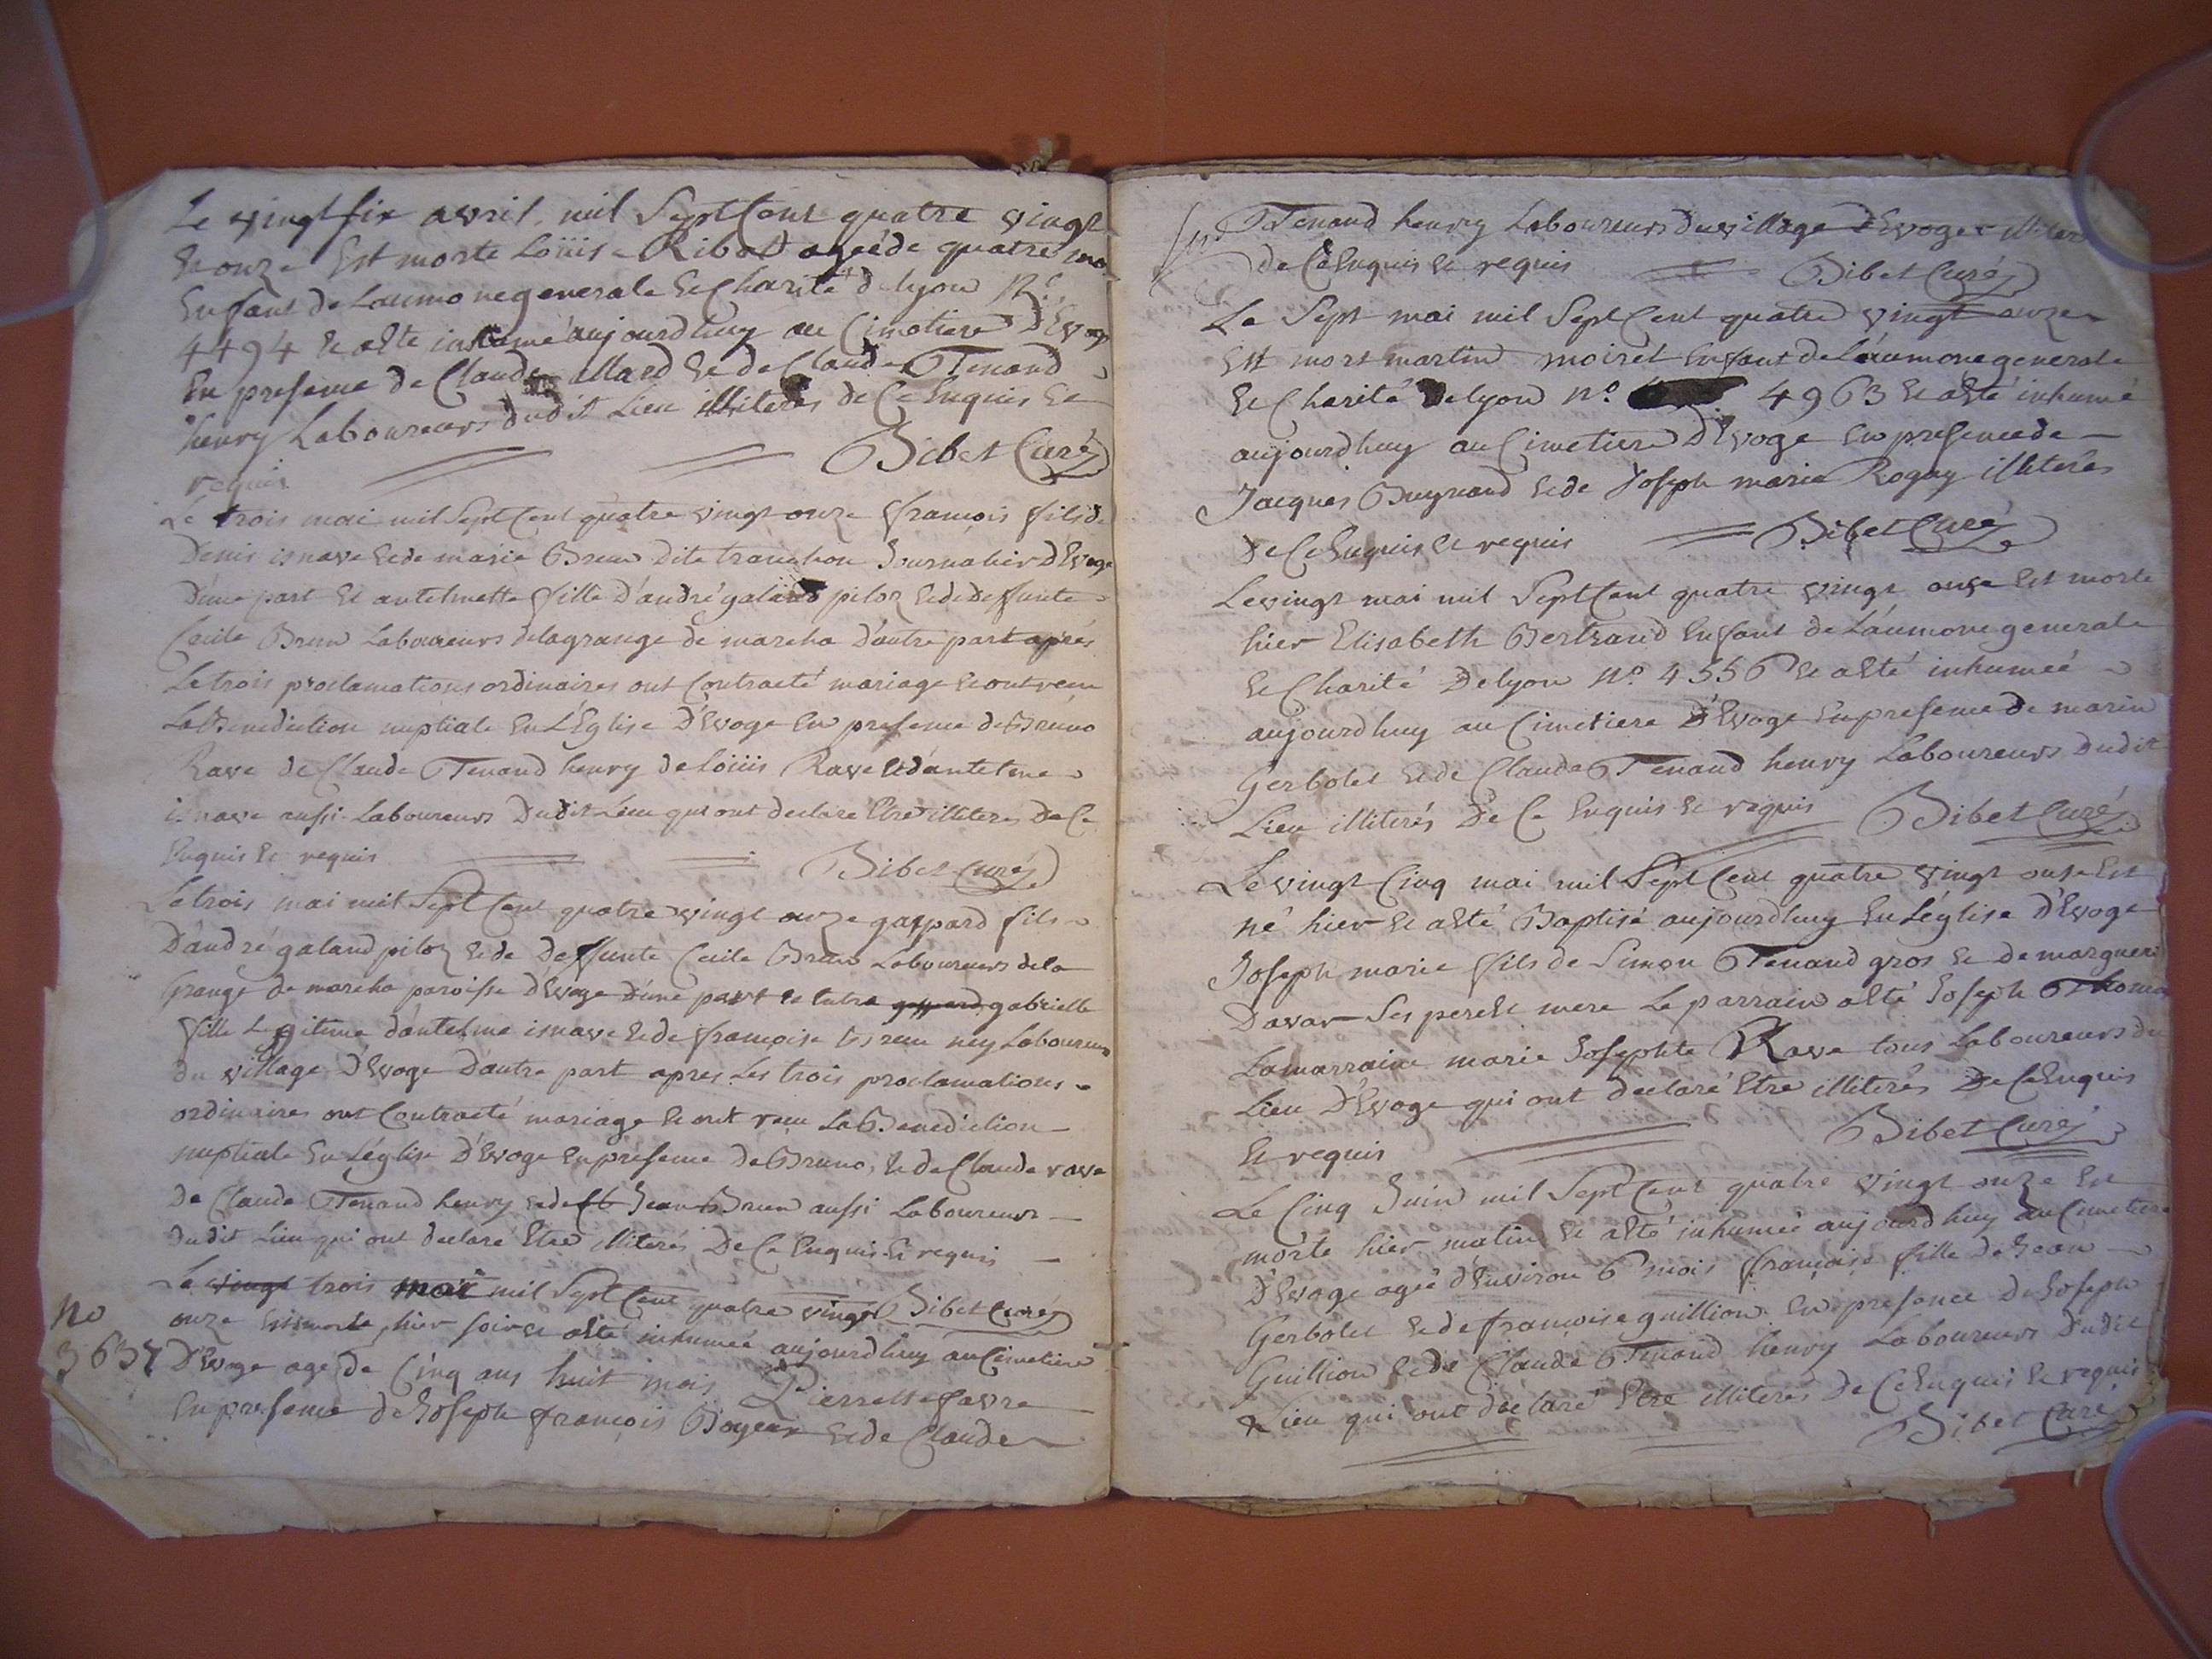 Le vingt six avril mil Sept Cent quatre vingt
Et onze Est morte Loüise Ribot ageé de quatre mo
Enfant de Laumone generale Et Charité de lyon No.
4494 Et a Eté inhumé aujourdhuy au Cimetiere D'Evoge
En presence de Claude allard Et de Claude Tenand
henry Laboureurs dudit Lieu illiterés de Ce Enquis Et
requis Bibet Curé
Le trois mai mil Sept Cent quatre vingt onze françois fils de
Denis isnave Et de marie Brun dite tranchon Journalier D'Evoge
D'une part Et antelmette fille D'andré galand piloz Et de deffunte
Cecile Brun Laboureurs de lagrange de mareha D'autre part aprés
Le trois proclamations ordinaires ont Contracté mariage Et ont recu
La Benediction nuptiale En L'Eglise D'Evoge En presence de Bruno
Rave de Claude Tenand henry de Loüis Rave Et d'antelme
isnave aussi Laboureurs Dudit Lieu qui ont declare Etre illiteres De Ce
Enquis Et requis Bibet Curé
Le trois mai mil Sept Cent quatre vingt onze gaspard fils
D'andré galand piloz Et de Deffunte Cecile Brun Laboureurs dela
Grange de mareha paroisse d'Evoge D'une part Et Entre gaspard gabrielle
fille Legitime d'antelme isnave Et de françoise Brun ney Laboureurs
du village D'Evoge D'autre part apres Les trois proclamations
ordinaires ont Contracté mariage Et ont recu La Benediction
nuptiale En L'église D'Evoge En présence De Bruno, Et de Claude rave
De Claude Tenand henry Et de Jean Brun aussi Laboureurs
Dudit Lieu qui ont declaré Etre illiterés De Ce Enquis Et requi
Le vingt trois mai mil Sept Cent quatre vingt Bibet Curé
No onze Est morte hier soir Et a Eté inhumeé aujourdhuy au Cimetiere
3637 D'Evoge age de Cinq ans huit mois Pierrette favre
En presence de Joseph françois Boyeux Et de Claude
Tenand henry Laboureurs du village D'Evoge illiter
de Ce Enquis Et requis Bibet Curé
Le Sept mai mil Sept Cent quatre vingt onze
Est mort martin moirét Enfant de L'aumone generale
Et Charité De lyon No. 4963 Et a Eté inhumé
aujourdhuy au Cimetiere D'Evoge En presence de
Jacques Buynand Et de Joseph marie Rogay illiterés
De Ce Enquis Et requis Bibet Curé
Le vingt mai mil Sept Cent quatre vingt onze Est morte
hier Elisabeth Bertrand Enfant de L'aumone generale
Et Charité De lyon No. 4556 Et a Eté inhumeé
aujourdhuy au Cimetiere D'Evoge En presence De marin
Gerbolet Et de Claude Tenand henry Laboureurs Dudit
Lieu illiterés De Ce Enquis Et requis Bibet Curé
Le vingt Cinq mai mil Sept Cent quatre vingt onze Est
né hier Et a Eté Baptisé aujourdhuy En L'église D'Evoge
Joseph marie fils de Simon Tenand gros Et de margueri
Davar Ses pere Et mere Le parrain a Eté Joseph Thoma
La marraine marie Josephte Rave tous Laboureurs du
Lieu D'Evoge qui ont declaré Etre illiterés De Ce Enquis
Et requis Bibet Curé
Le Cinq Juin mil Sept Cent quatre vingt onze Est
morte hier matin Et a Eté inhumeé aujourdhuy au Cimetiere
D'Evoge ageé d'Environ 6 mois françoise fille De Jean
Gerbolet Et de françoise guillion En presence De Joseph
Guillion Et de Claude Tenand henry Laboureurs Dudit
Lieu qui ont declaré Etre illiterés De Ce Enquis Et requis
Bibet Curé